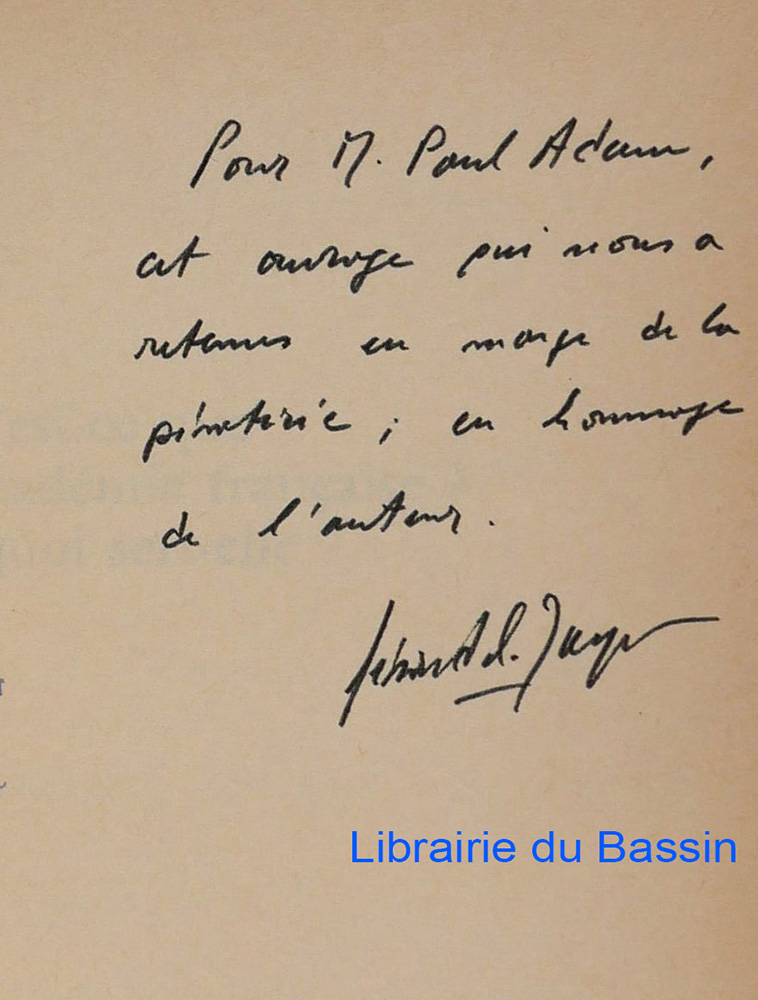 Pour M. Paul Adam,
cet ouvrage qui nous a
retenus en marge de la
piraterie ; en hommage
de l'auteur.
Gérard A. Jaeger
Librairie du Bassin